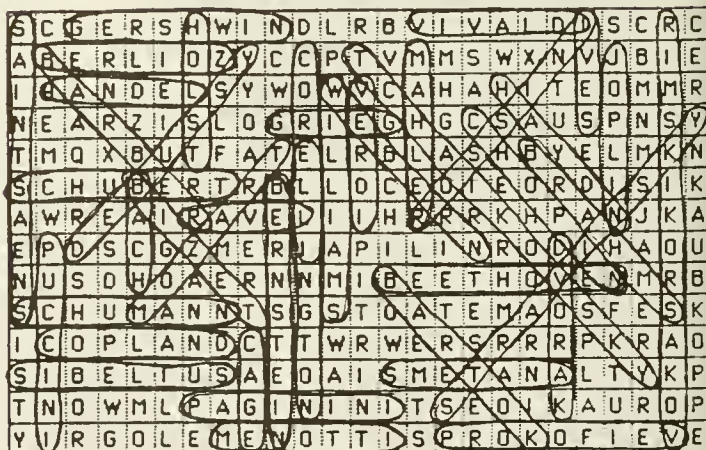 S C G E R S H W I N D L R B V I V A L D I S C R C
A B E R L I O Z Y C C P T V M M S W X N V J B I E
I H A N D E L S Y W O W V C A H A H I T E O M M R
N E A R Z I S L O G R I E G H G C S A U S P N S Y
T M Q X B U T F A T E L R B L A S H B Y E L M K N
S C H U B E R T R B L L O C E O T E O R D I S I K
A W R E A I R A V E L I I H R R R K H P A N J K A
E P D S C G Z M E R J A P I L I N R O D I H A O U
N U S O H O A E R N N M I B E E T H O V E N M R B
S C H U M A N N T S G S T O A T E M A O S F E S K
I C O P L A N D C T T W R W E R S R R R P K R A O
S I B E L T U S A E O A I S M E T A N A L T Y K P
T N O W M L P A G I N I N I T S E O I K A U R O P
Y I R G O L E M E N O T T I S P R O K O F I E V E